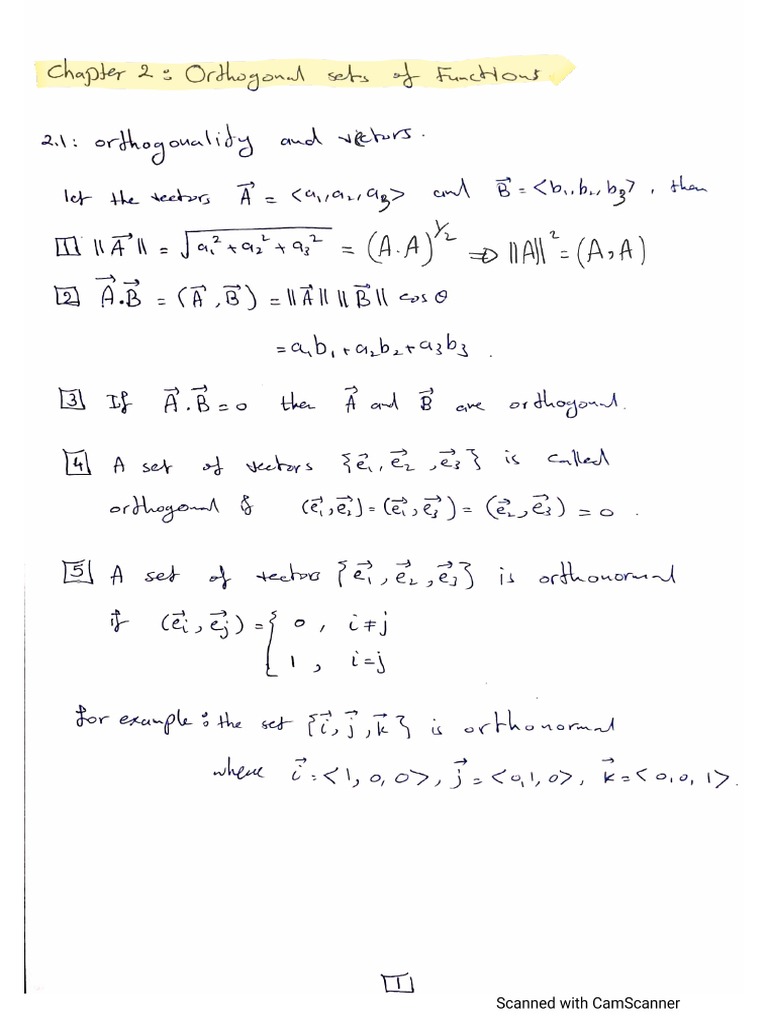 Chapter 2: Orthogonal sets of Functions.
2.1: orthogonality and vectors.
let the vectors A⃗ = <a₁, a₂, a₃> and B⃗ = <b₁, b₂, b₃>, then
[1] ||A⃗|| = √(a₁² + a₂² + a₃²) = (A.A)^(1/2) ⇒ ||A||² = (A, A)
[2] A⃗.B⃗ = (A⃗, B⃗) = ||A⃗|| ||B⃗|| cos θ
= a₁b₁ + a₂b₂ + a₃b₃.
[3] If A⃗.B⃗ = 0 then A⃗ and B⃗ are orthogonal.
[4] A set of vectors {e⃗₁, e⃗₂, e⃗₃} is called
orthogonal if (e⃗₁, e⃗₂) = (e⃗₁, e⃗₃) = (e⃗₂, e⃗₃) = 0.
[5] A set of vectors {e⃗₁, e⃗₂, e⃗₃} is orthonormal
if (e⃗ᵢ, e⃗ⱼ) = { 0, i ≠ j
1, i = j
for example: the set {i⃗, j⃗, k⃗} is orthonormal
where i⃗ = <1, 0, 0>, j⃗ = <0, 1, 0>, k⃗ = <0, 0, 1>.
[1]
Scanned with CamScanner